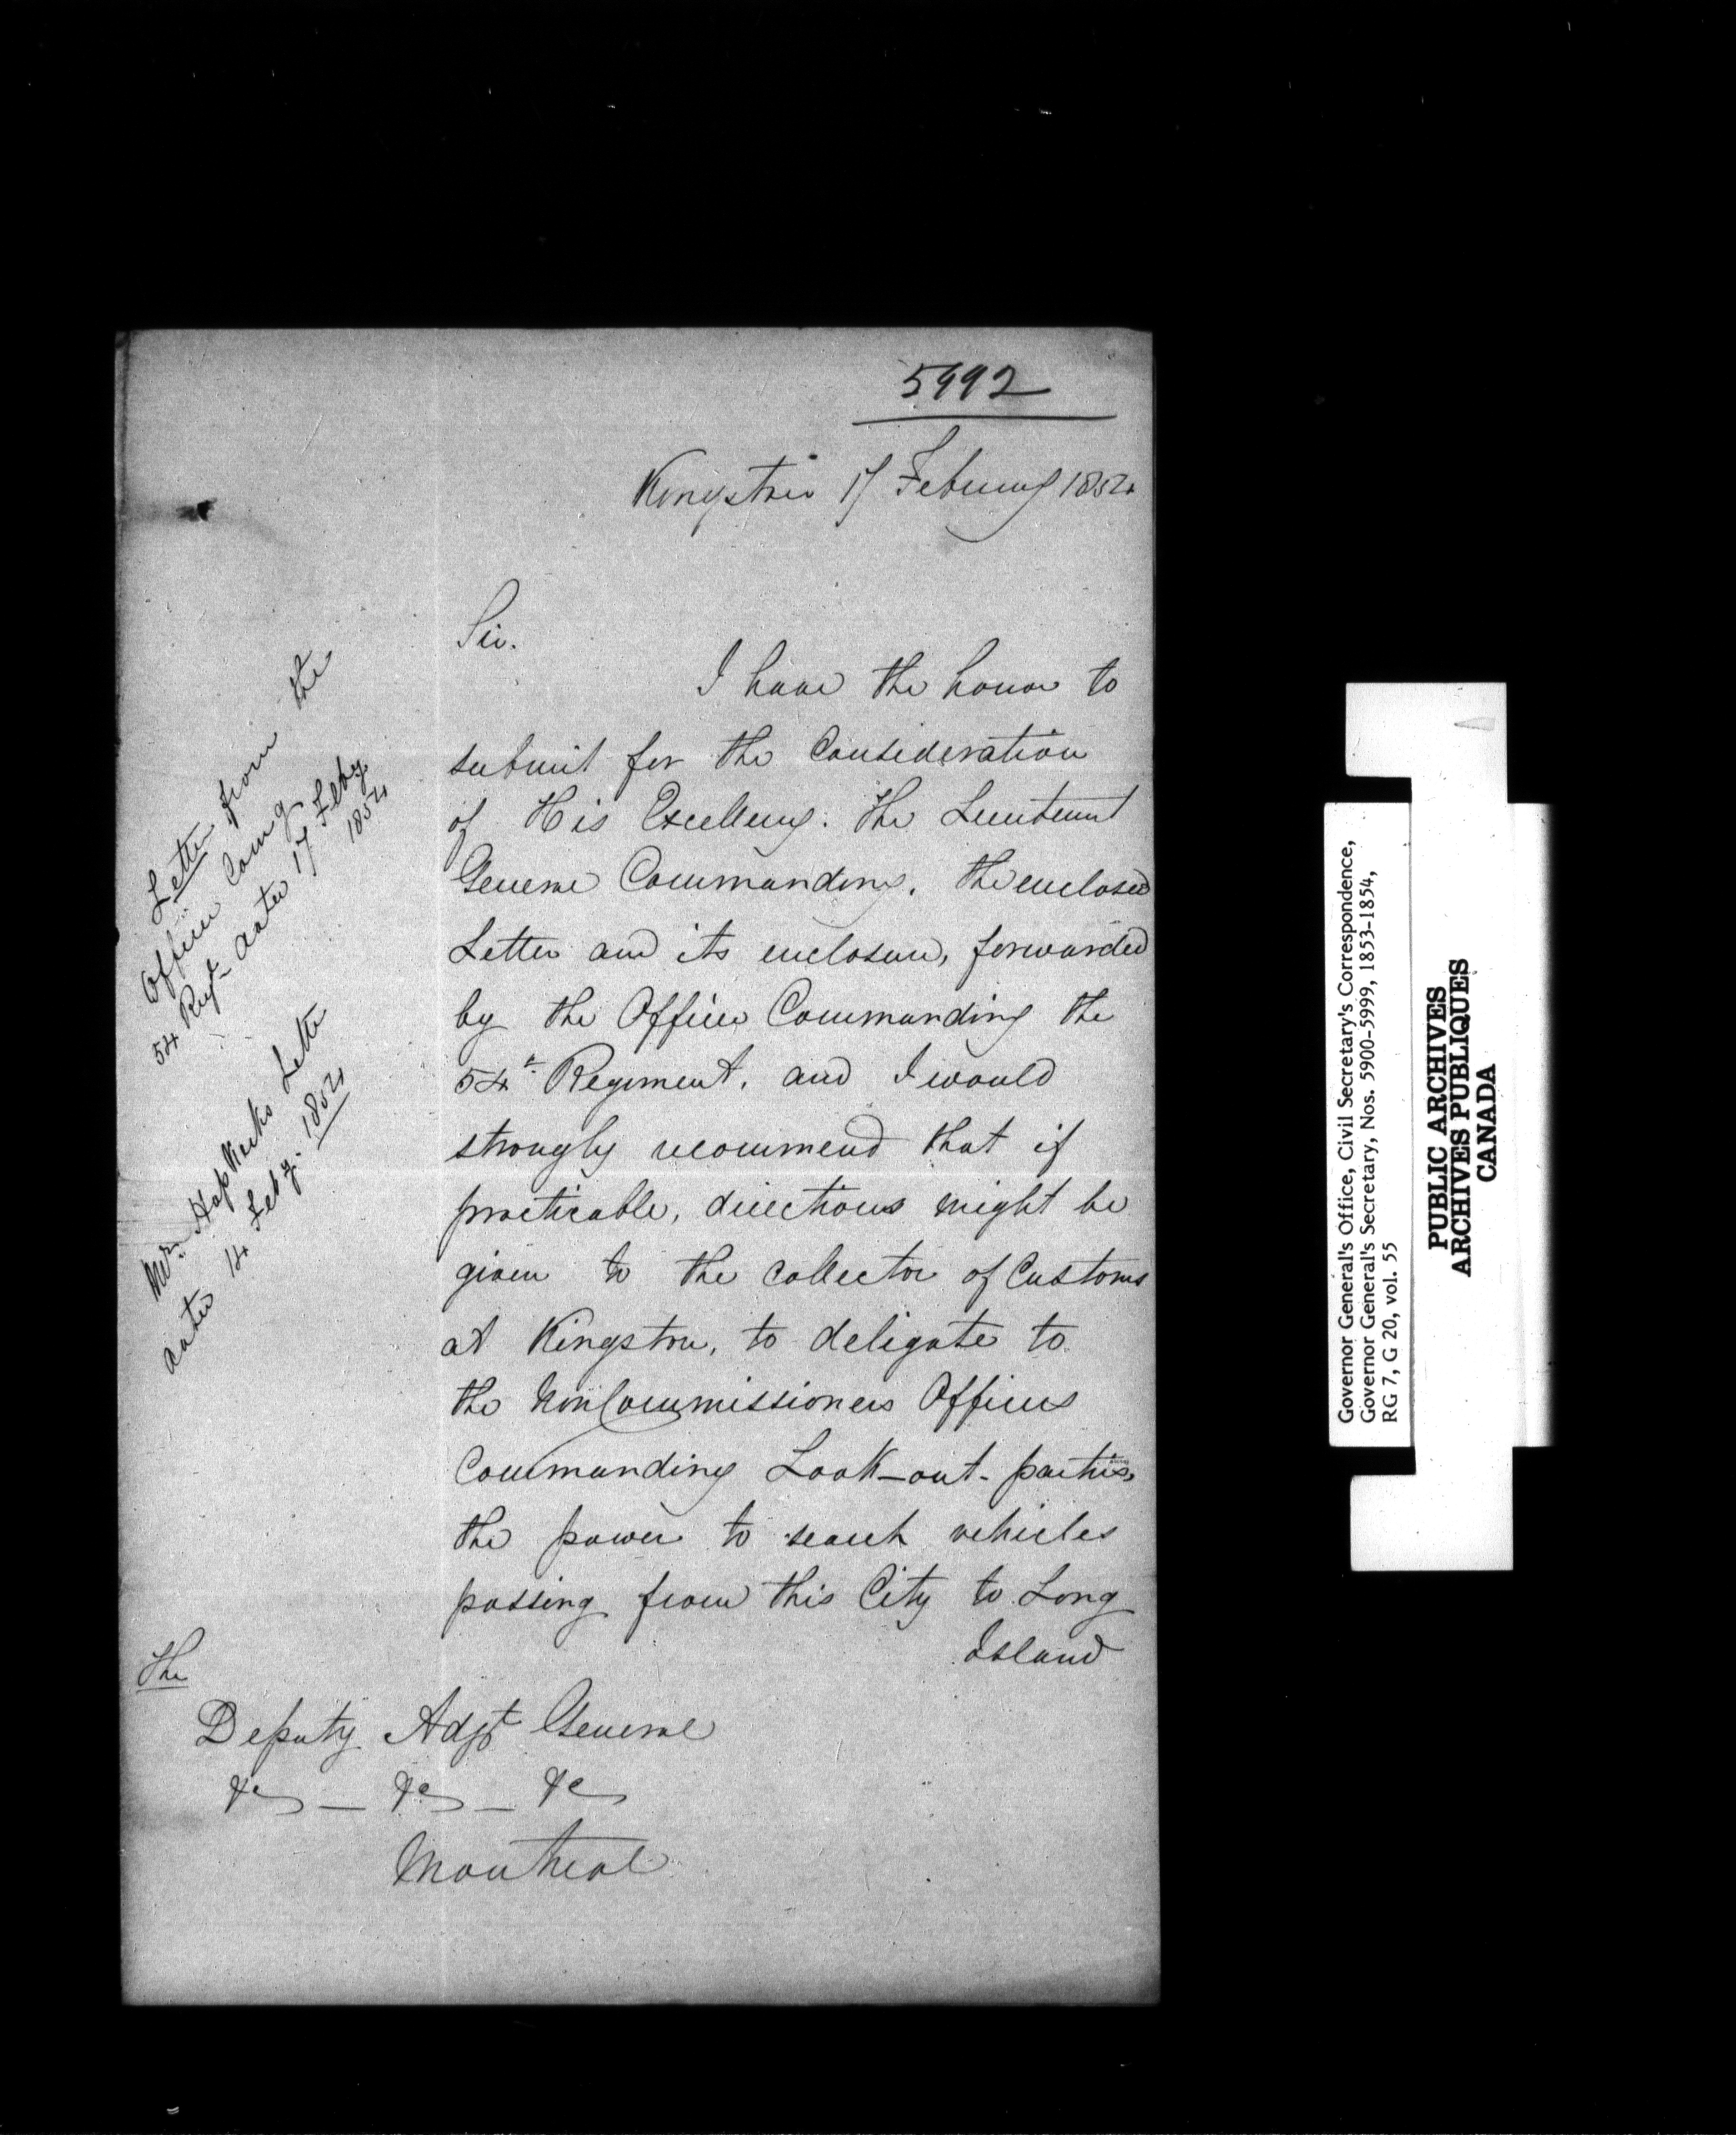 5992
Kingston 17 February 1854
Sir.
I have the honor to
submit for the Consideration
of His Excellency. The Lieutenant
General Commanding. the enclosed
Letter and its enclosure, forwarded
by the Officer Commanding the
54th Regiment. and I would
strongly recommend that if
practicable, directions might be
given to the Collector of Customs
at Kingston, to deligate to
the NonCommissioned Officers
Commanding Look-out- parties,
the power to search vehicles
passing from this City to Long
Island
The
Deputy Adjt General
&c – &c – &c
Montreal
Letter from the
Officer Comg
54 Regt dated 17 Feby
1854
Mr Letter
dated 14 Feby. 1854
Governor General's Office, Civil Secretary's Correspondence,
Governor General's Secretary, Nos. 5900-5999, 1853-1854,
RG 7, G 20, vol. 55
PUBLIC ARCHIVES
ARCHIVES PUBLIQUES
CANADA